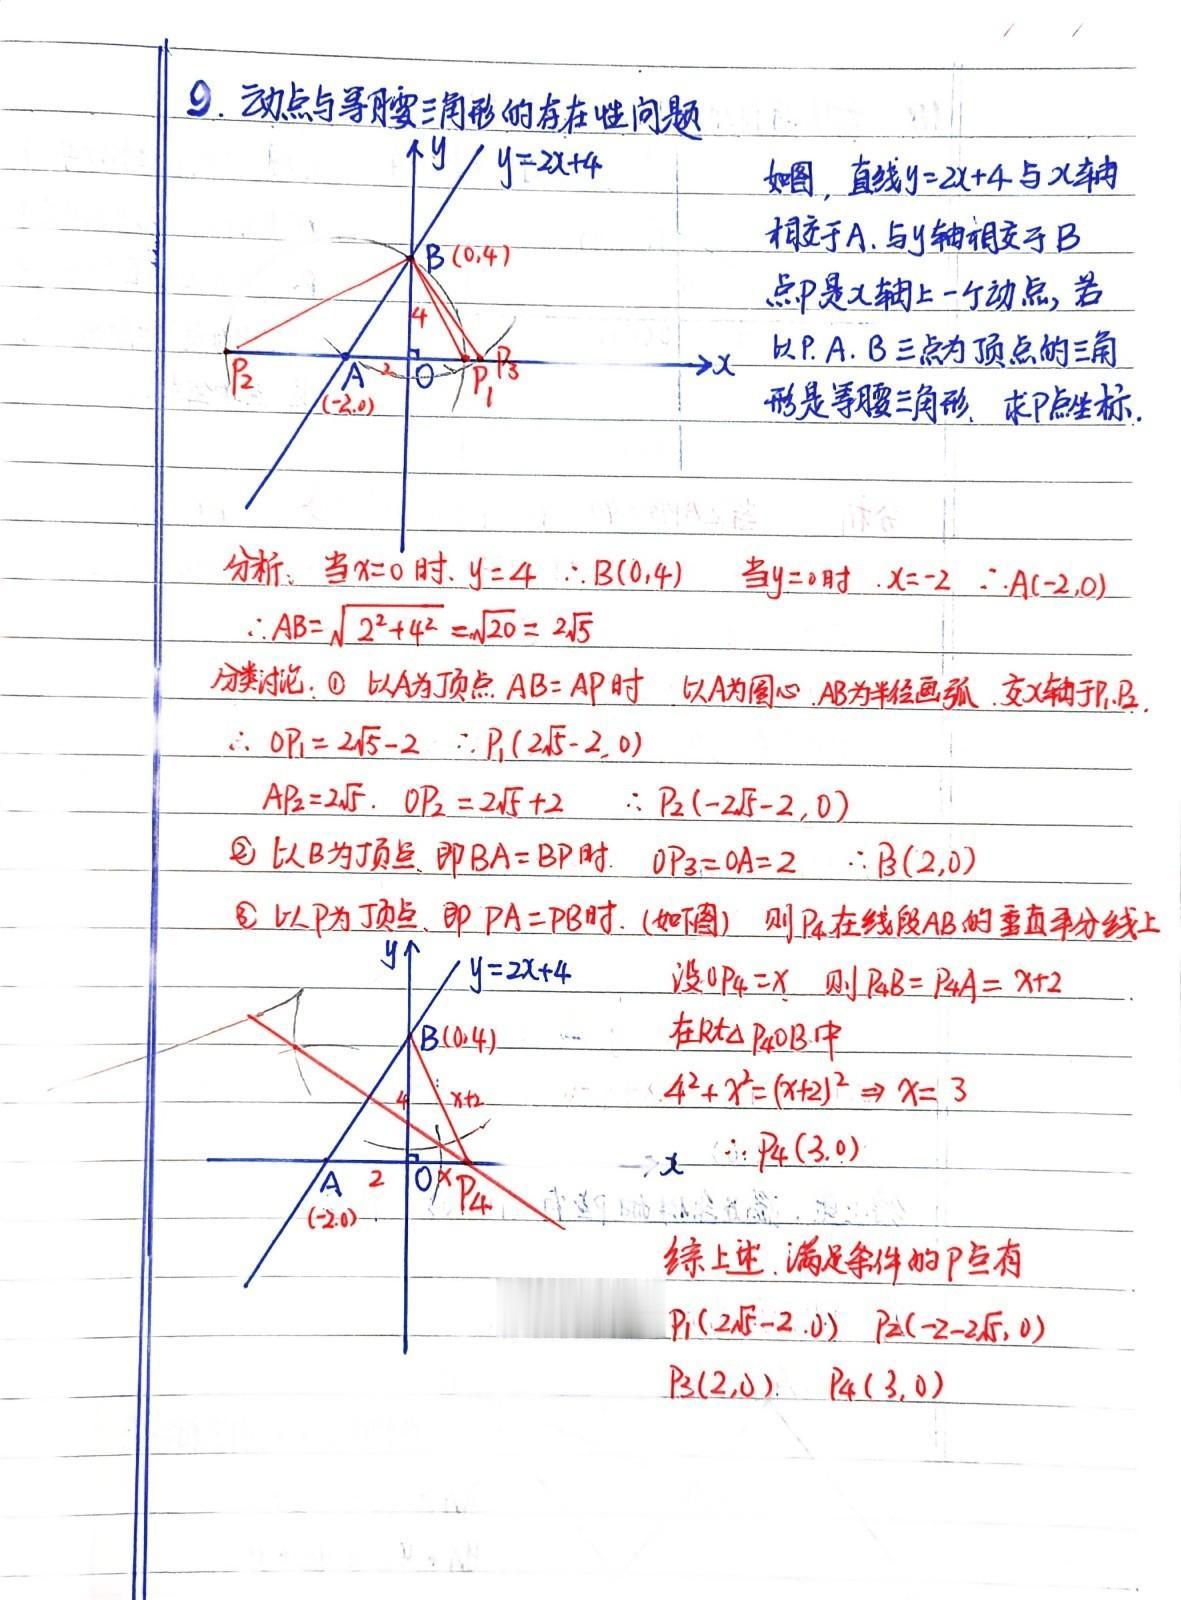 9. 动点与等腰三角形的存在性问题
y
y=2x+4
B(0,4)
4
P2
A
2
O
P1
P3
x
(-2.0)
如图, 直线y=2x+4与x轴
相交于A.与y轴相交于B
点P是x轴上一个动点, 若
以P.A.B三点为顶点的三角
形是等腰三角形. 求P点坐标.
分析: 当x=0时. y=4 ∴B(0,4) 当y=0时.x=-2 ∴A(-2,0)
∴AB=√(2²+4²)=√20=2√5
分类讨论: ① 以A为顶点 AB=AP时 以A为圆心.AB为半径画弧.交x轴于P1.P2.
∴ OP1=2√5-2 ∴P1(2√5-2,0)
AP2=2√5. OP2=2√5+2 ∴P2(-2√5-2,0)
② 以B为顶点、即BA=BP时. OP3=OA=2 ∴P3(2,0)
③ 以P为顶点、即PA=PB时.(如下图) 则P4在线段AB的垂直平分线上
y
y=2x+4
B(0.4)
4
x+2
A
2
O
x
P4
x
(-2.0)
设OP4=x 则P4B=P4A=x+2
在Rt△P4OB中
4²+x²=(x+2)² ⇒ x=3
∴P4(3.0)
综上述.满足条件的P点有
P1(2√5-2.0) P2(-2-2√5,0)
P3(2,0) P4(3,0)